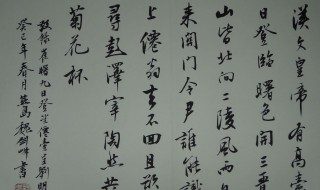 漢文皇帝有高臺
日登臨曙色開三晉
山皆北向二陵風雨自
來關門令尹誰能識
上僊翁去不回且欲
尋彭澤宰陶然共
菊花杯
錄崔曙九日登望僊臺呈劉明
癸巳年春月魏劍峰書